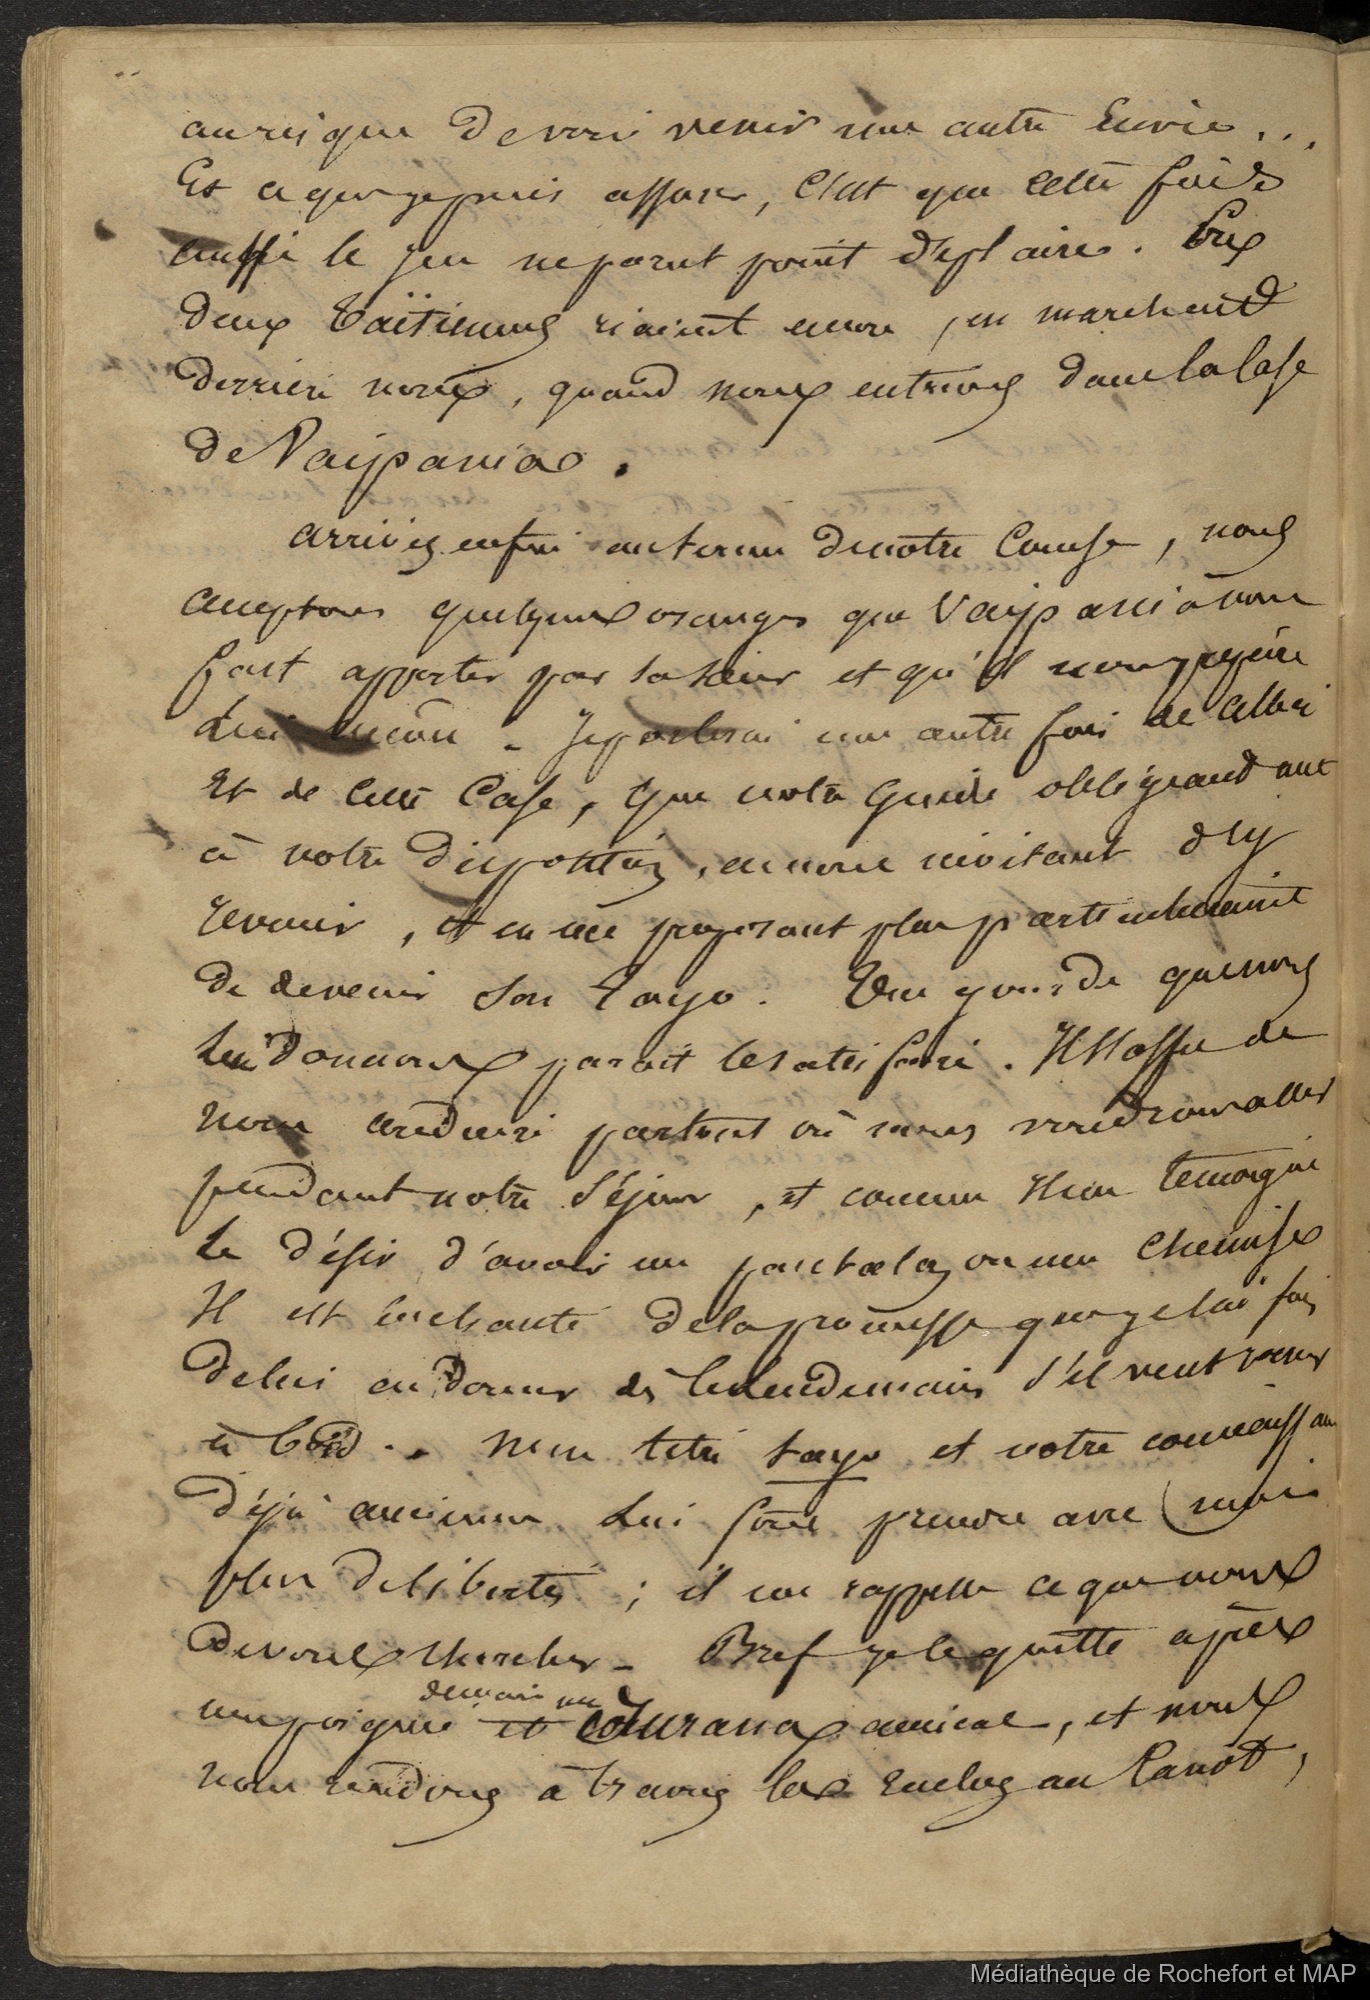 au risque de voir venir une autre Envie...
Et ce que je puis assurer, c'est que cette fois
aussi le jeu ne parut point déplaire. Les
deux Taïtiennes riaient encore, en marchant
derrière nous, quand nous entrions dans la Case
de Vaipania.
arrivés enfin au terme de notre Course, nous
acceptons quelques oranges que Vaipani à nous
fait apporter par sa sœur et qu'il nous prépare
Lui même. Je parlerai une autre fois de celle-ci
Et de cette Case, que notre Guide obligeant met
à notre disposition, en nous invitant d'y
revenir, et en me proposant plus particulièrement
de devenir son tayo. Une que nous
Lui donnons parait le satisfaire. Il s'offre de
nous conduire partout où nous voudrons aller
pendant notre séjour, et comme il me témoigne
Le désir d'avoir un pantalon ou une chemise
Il est enchanté de la promesse que je lui fais
de lui en donner dès le lendemain s'il veut venir
à bord. Mon titre tayo et notre connaissance
déjà ancienne Lui font prendre avec moi
plus de liberté; il me rappelle ce que nous
devons chercher. Bref je le quitte après
une poignée de main et un Iourana amical, et nous
nous rendons à travers les Enclos au Canot,
Médiathèque de Rochefort et MAP